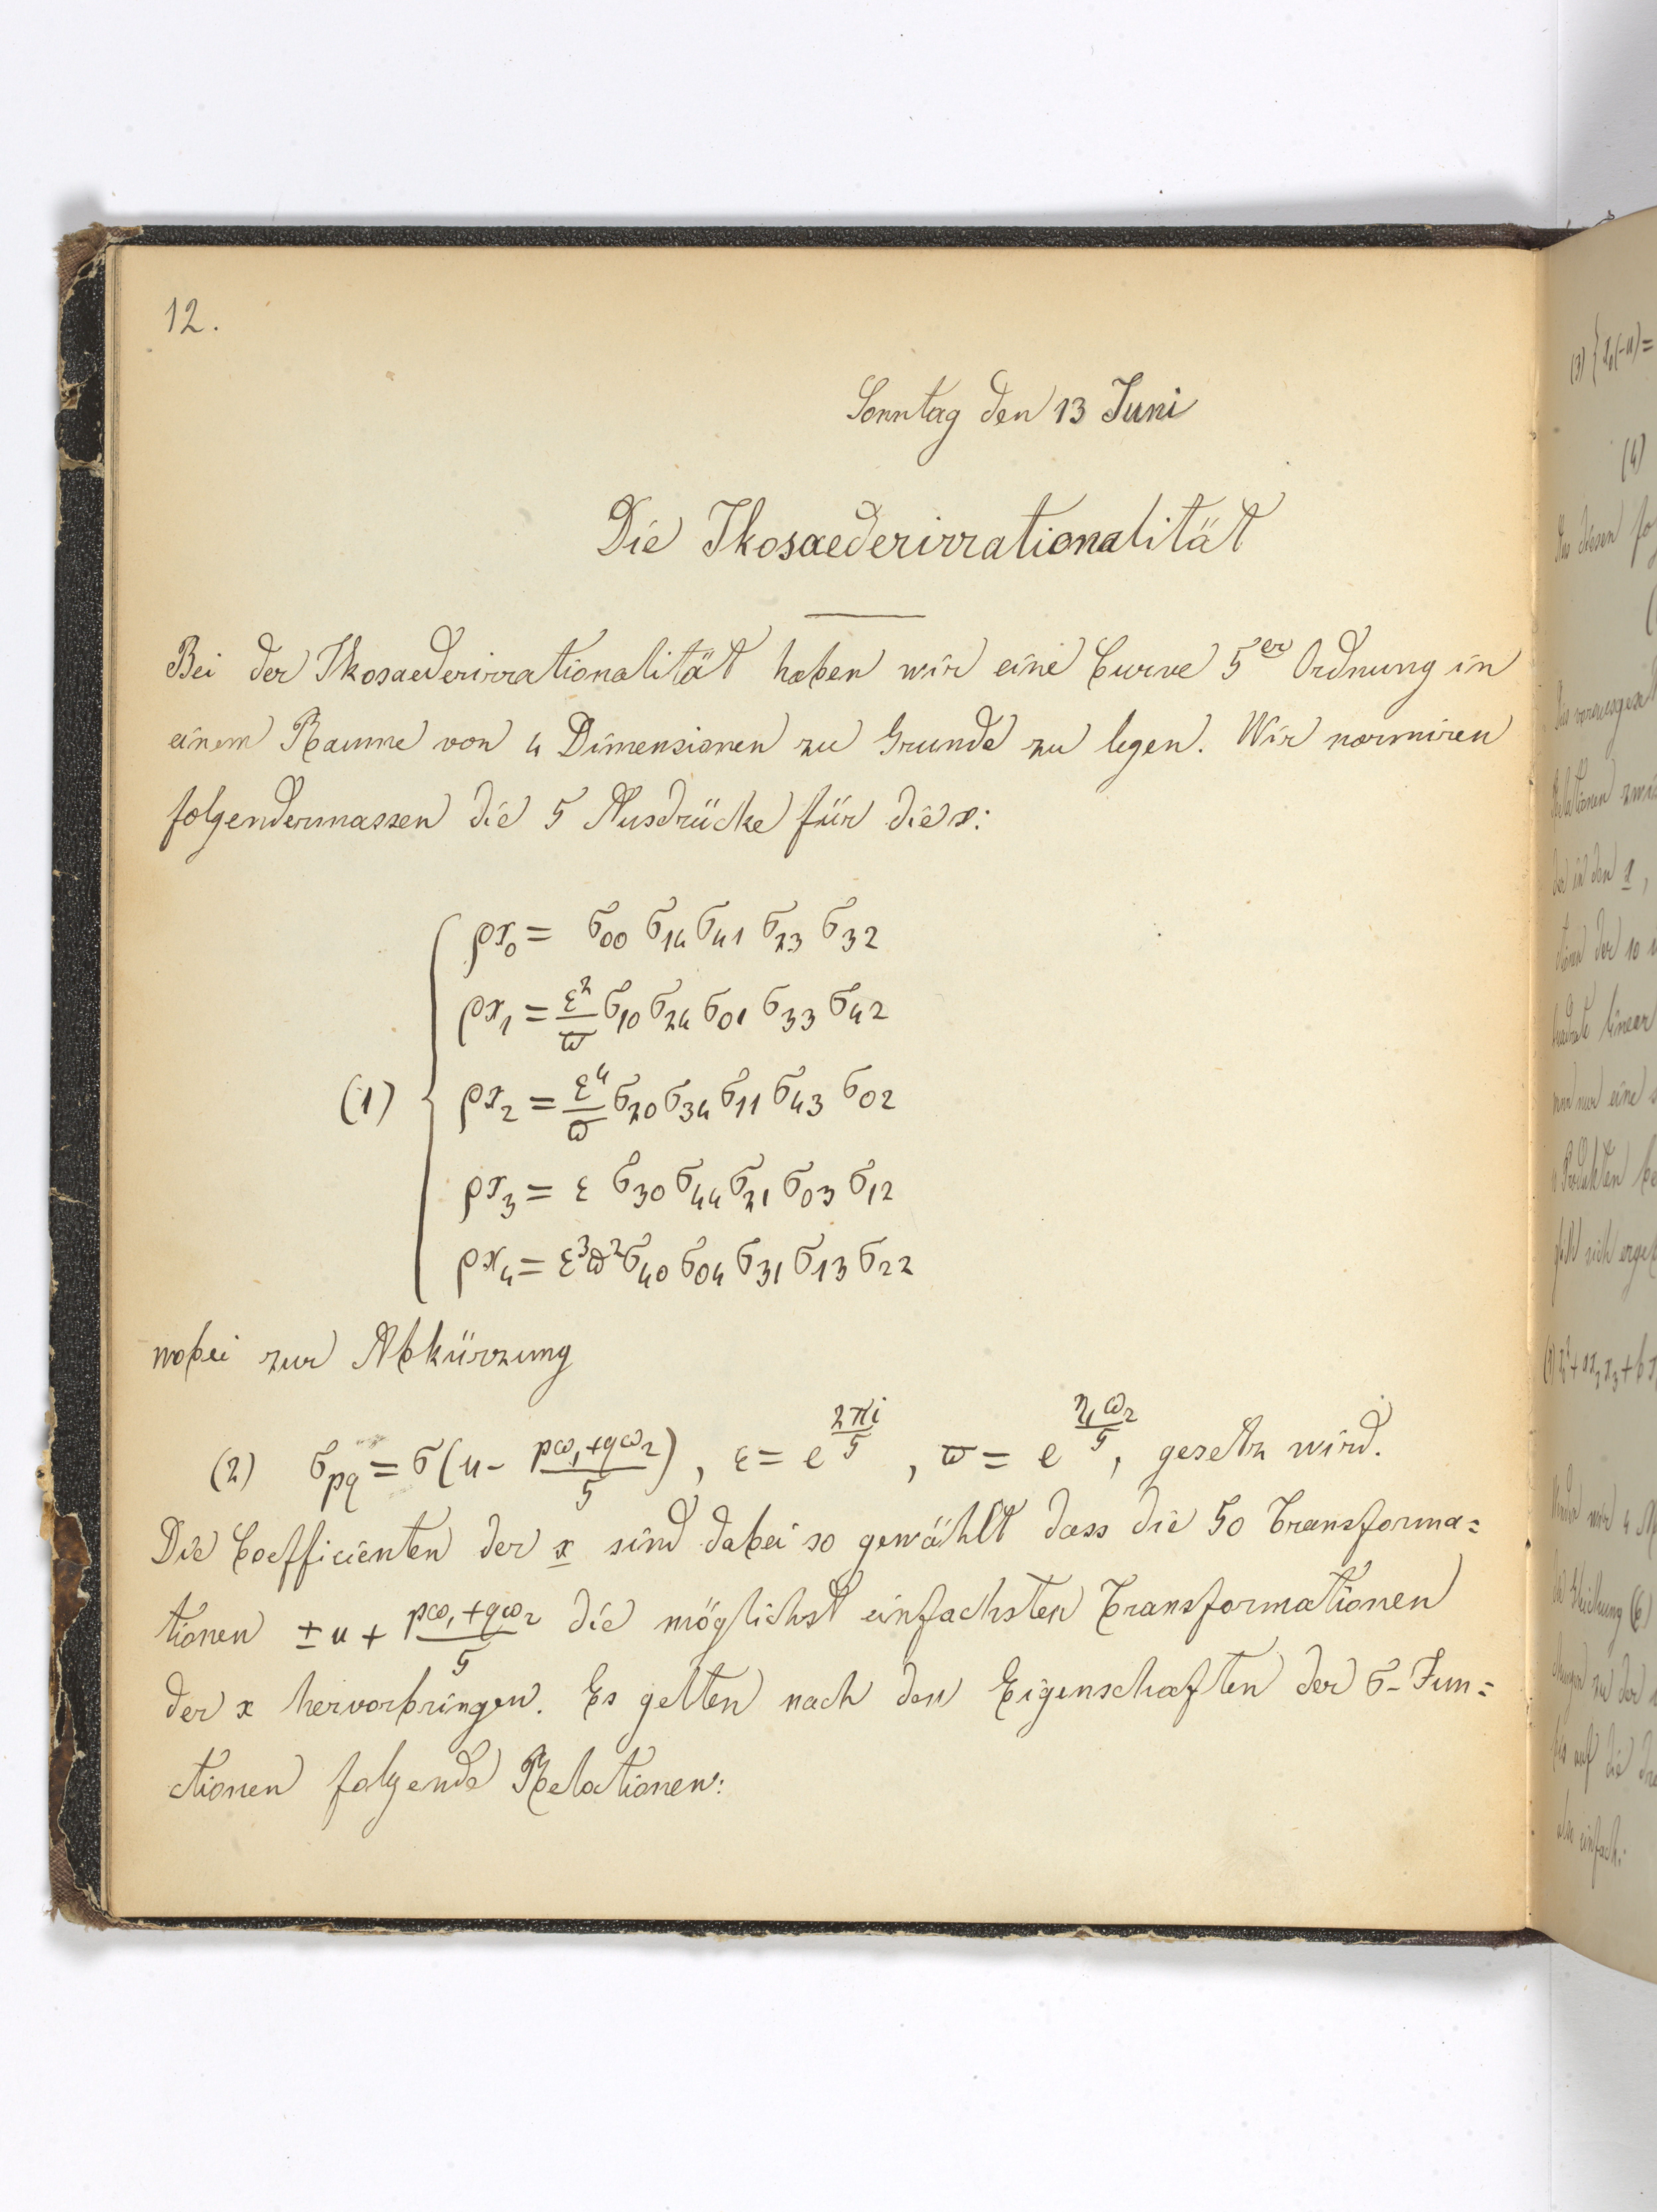 12.
Sonntag den 13 Juni
Die Ikosaederirrationalität
Bei der Ikosaederirrationalität haben wir eine Curve 5er Ordnung in
einem Raume von 4 Dimensionen zu Grunde zu legen. Wir normiren
folgendermassen die 5 Ausdrücke für die x:
ρx₀ = σ₀₀ σ₁₄ σ₄₁ σ₂₃ σ₃₂
ρx₁ = ε²/ϖ σ₁₀ σ₂₄ σ₀₁ σ₃₃ σ₄₂
(1) ρx₂ = ε⁴/ϖ σ₂₀ σ₃₄ σ₁₁ σ₄₃ σ₀₂
ρx₃ = ε σ₃₀ σ₄₄ σ₂₁ σ₀₃ σ₁₂
ρx₄ = ε³ϖ² σ₄₀ σ₀₄ σ₃₁ σ₁₃ σ₂₂
wobei zur Abkürzung
(2) σpq = σ(u - (pω₁+qω₂)/5), ε = e^(2πi/5), ϖ = e^(η₁ω₂/5), gesetz wird.
Die Coefficienten der x sind dabei so gewählt dass die 50 Transforma=
tionen ±u + (pω₁+qω₂)/5 die möglichst einfachsten Transformationen
der x hervorbringen. Es gelten nach den Eigenschaften der σ-Fun=
ctionen folgende Relationen:
(3) { x₀(-u) =
(4)
Aus diesen
(
Relationen
der in den x,
der 10
linear
man nur eine
Produkten
sich
Gleichung (6)
zu der
bis auf die
einfach: